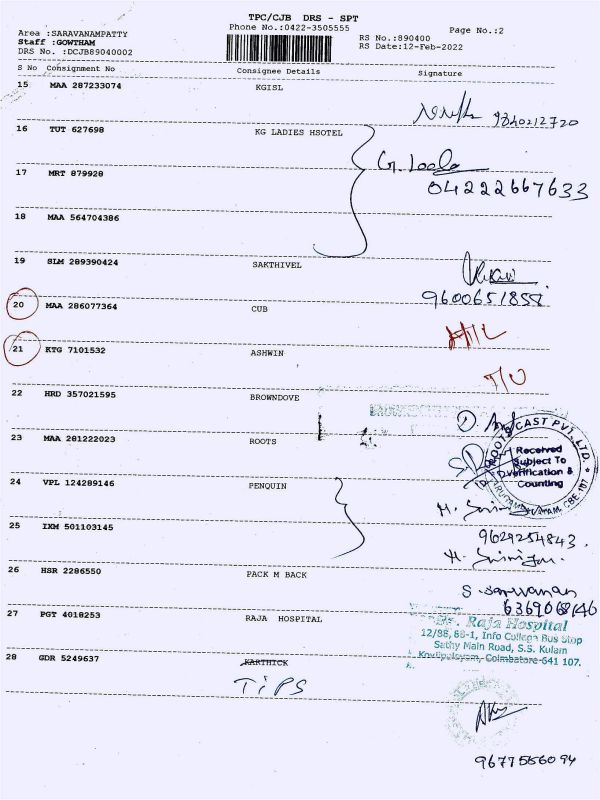 TPC/CJB DRS - SPT
Phone No.:0422-3505555
Page No.:2
Area :SARAVANAMPATTY
Staff :GOWTHAM
DRS No. :DCJB89040002
RS No.:890400
RS Date:12-Feb-2022
S No Consignment No Consignee Details Signature
15 MAA 287233074 KGISL
9840212720
16 TUT 627698 KG LADIES HSOTEL
17 MRT 879928
04222667633
18 MAA 564704386
19 SLM 289390424 SAKTHIVEL
9600651855
20 MAA 286077364 CUB
21 KTG 7101532 ASHWIN
22 HRD 357021595 BROWNDOVE
23 MAA 281222023 ROOTS
ROOTS CAST PVT. LTD.
Received
Subject To
Verification &
Counting
24 VPL 124289146 PENQUIN
25 IXM 501103145
9629254843
26 HSR 2286550 PACK M BACK
S. Saravanan
27 PGT 4018253 RAJA HOSPITAL
Dr. Raja Hospital
12/88, 88-1, Info College Bus Stop
Sathy Main Road, S.S. Kulam
Kovilpalayam, Coimbatore-641 107.
28 GDR 5249637 KARTHICK
TIPS